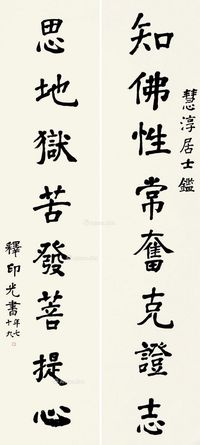 慧淳居士鑑
知佛性常奮克證志
思地獄苦發菩提心
釋印光書
年七十九